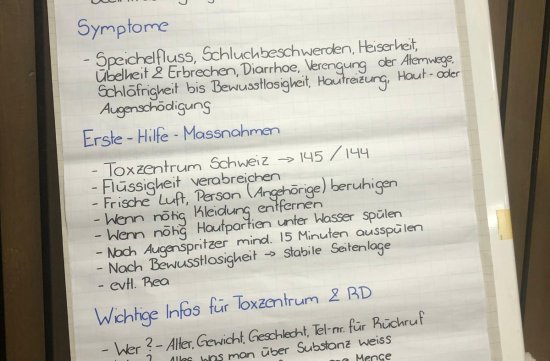 Symptome
- Speichelfluss, Schluckbeschwerden, Heiserkeit,
Übelkeit & Erbrechen, Diarrhoe, Verengung der Atemwege,
Schläfrigkeit bis Bewusstlosigkeit, Hautreizung, Haut- oder
Augenschädigung
Erste-Hilfe-Massnahmen
- Toxzentrum Schweiz → 145 / 144
- Flüssigkeit verabreichen
- Frische Luft, Person (Angehörige) beruhigen
- Wenn nötig Kleidung entfernen
- Wenn nötig Hautpartien unter Wasser spülen
- Nach Augenspritzer mind. 15 Minuten ausspülen
- Nach Bewusstlosigkeit → stabile Seitenlage
- evtl. Rea
Wichtige Infos für Toxzentrum & RD
- Wer? - Alter, Gewicht, Geschlecht, Tel-nr. für Rückruf
? - Alles was man über Substanz weiss
Menge